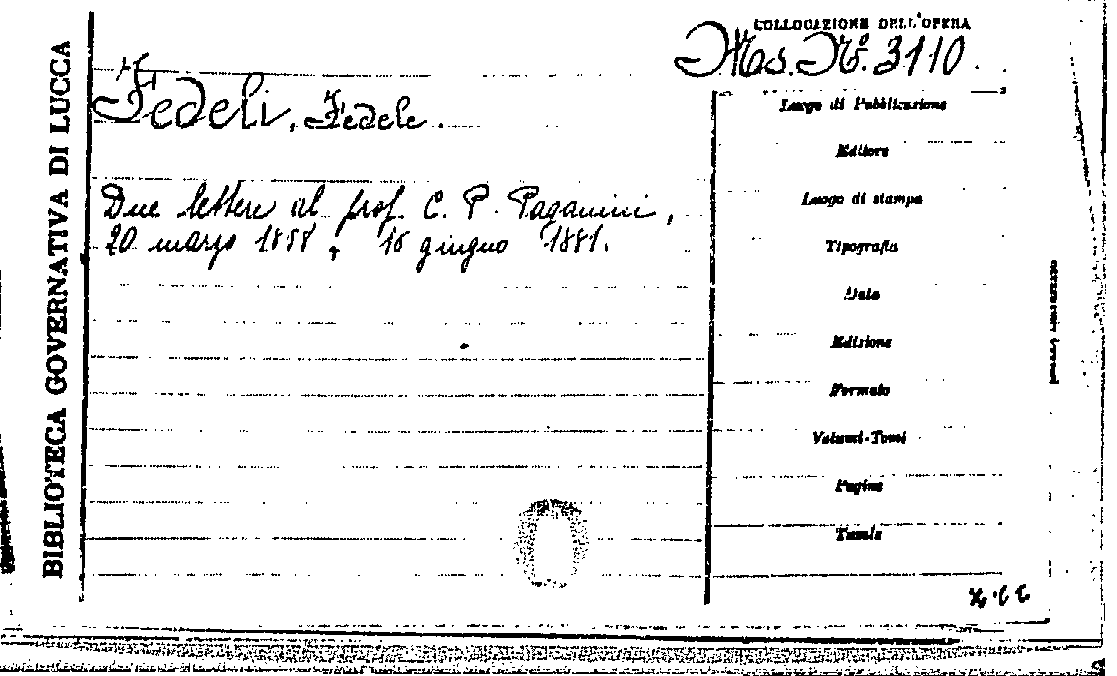 COLLOCAZIONE DELL'OPERA
Ms. Nº. 3110.
BIBLIOTECA GOVERNATIVA DI LUCCA
Fedeli, Fedele.
Due lettere al prof. C. P. Paganini,
20 marzo 1858, 16 giugno 1881.
Luogo di Pubblicazione
Editore
Luogo di stampa
Tipografia
Data
Edizione
Formato
Volumi-Tomi
Pagine
Tavole